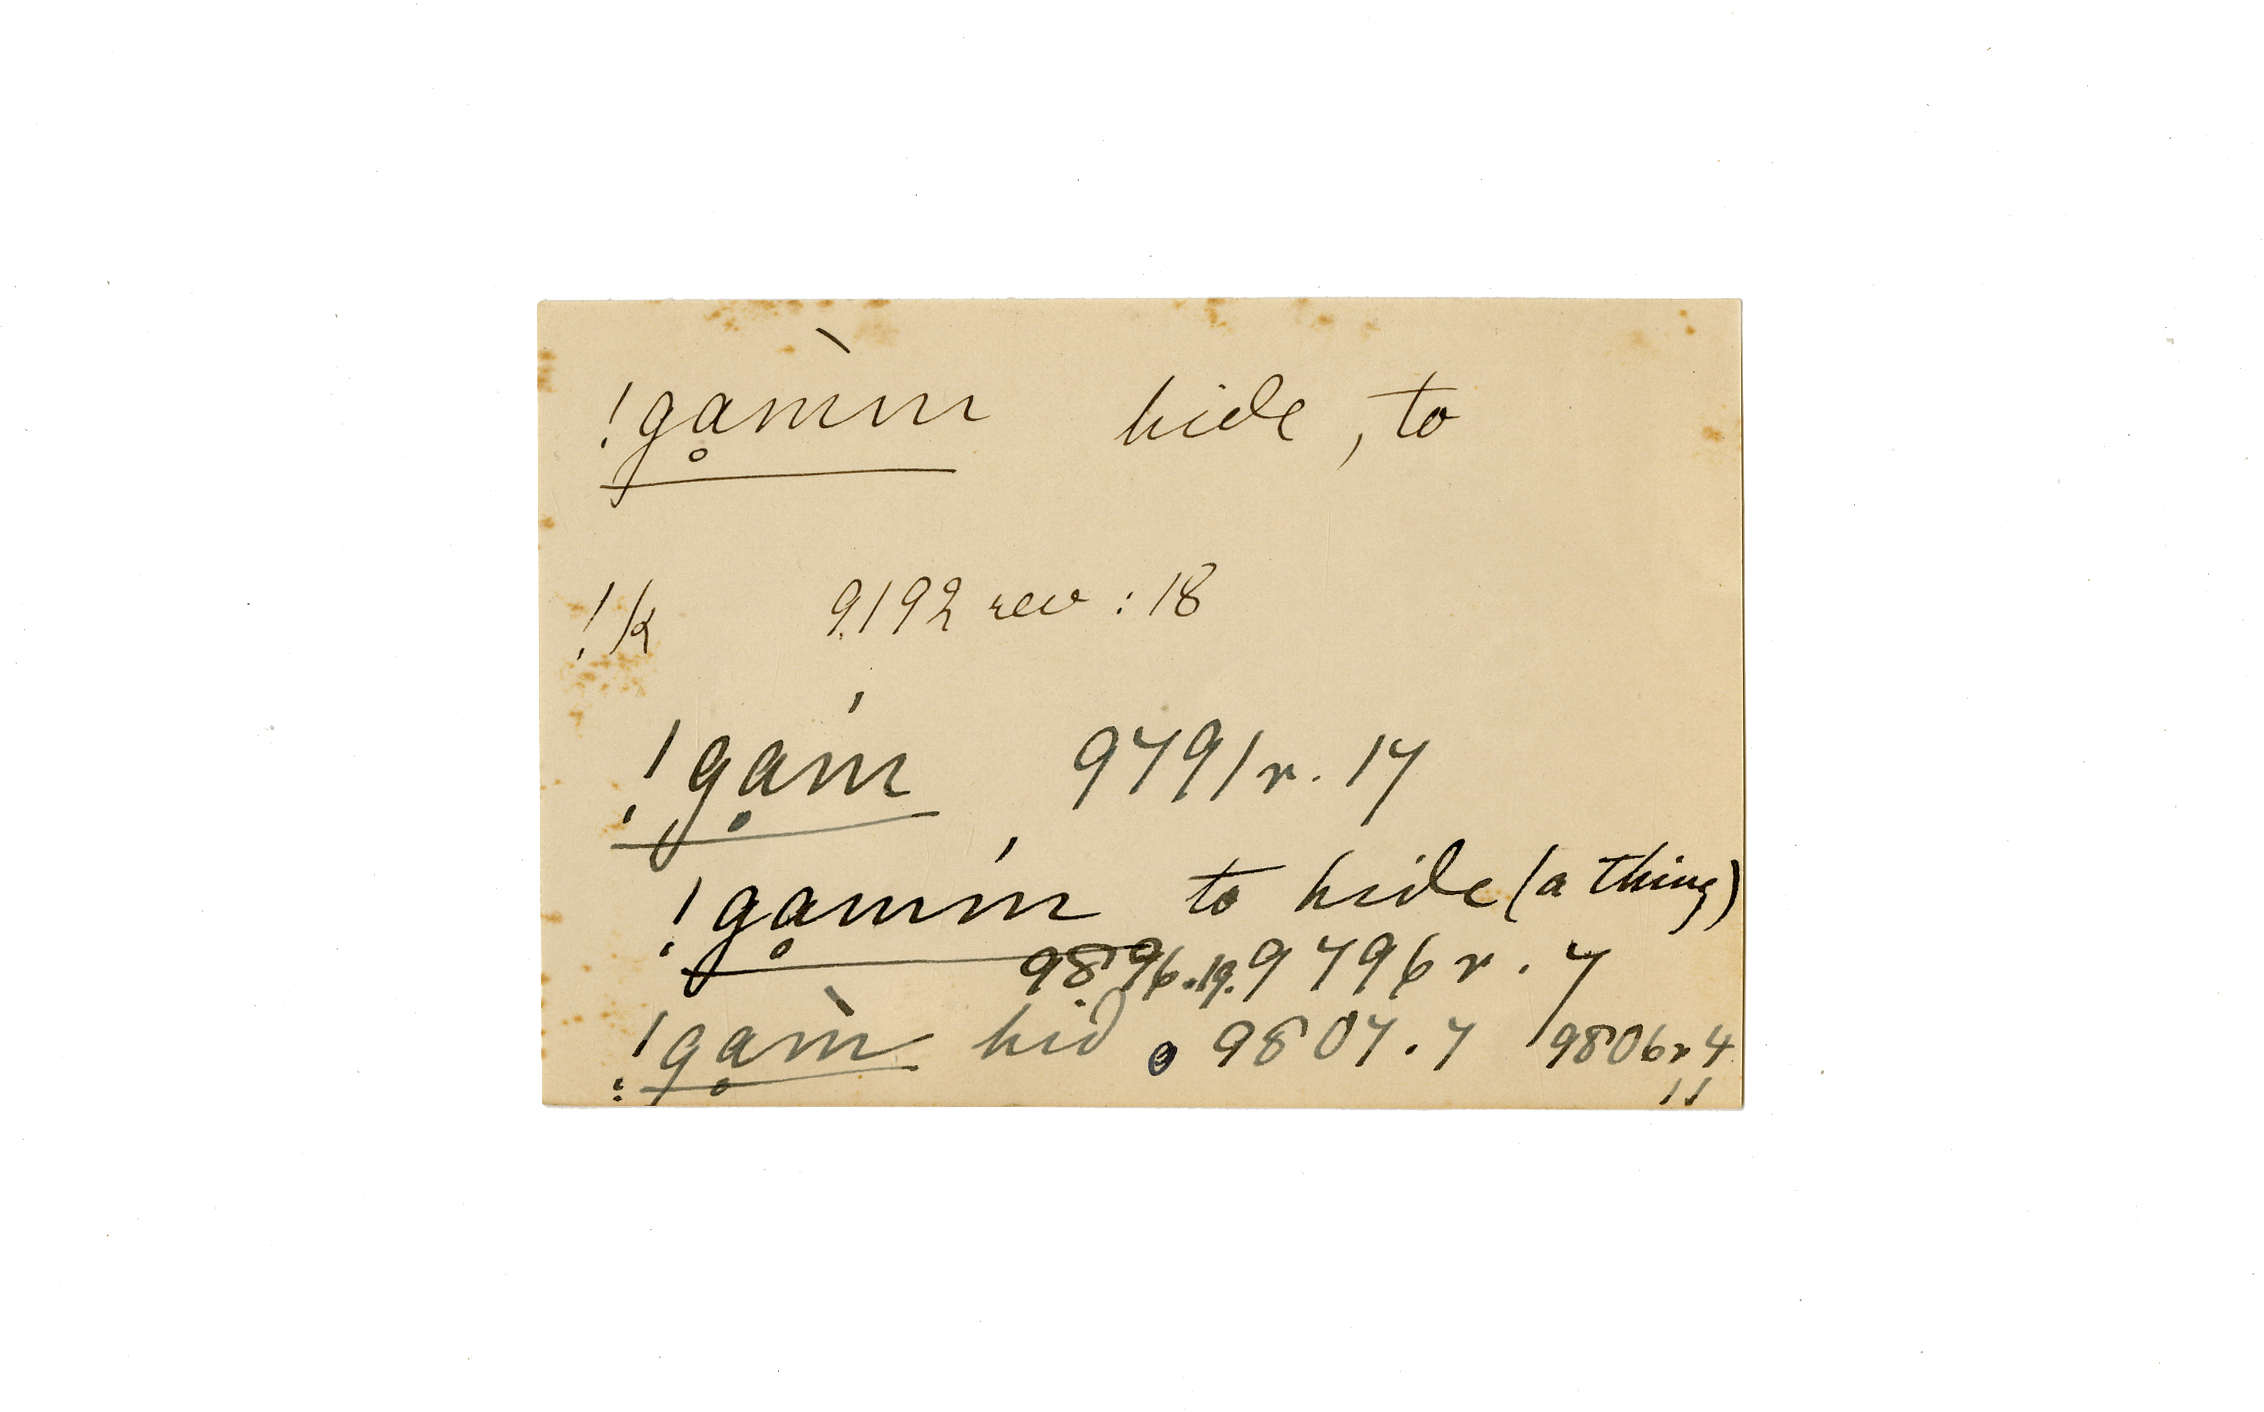 !gḁm̀m hide, to
!k 9192 rev : 18
!gḁḿ 9791 r. 17
!gḁmḿ to hide (a thing)
9896.19. 9796 r. 7
!gḁm̀ hid 9807.7 9806 r 4
11